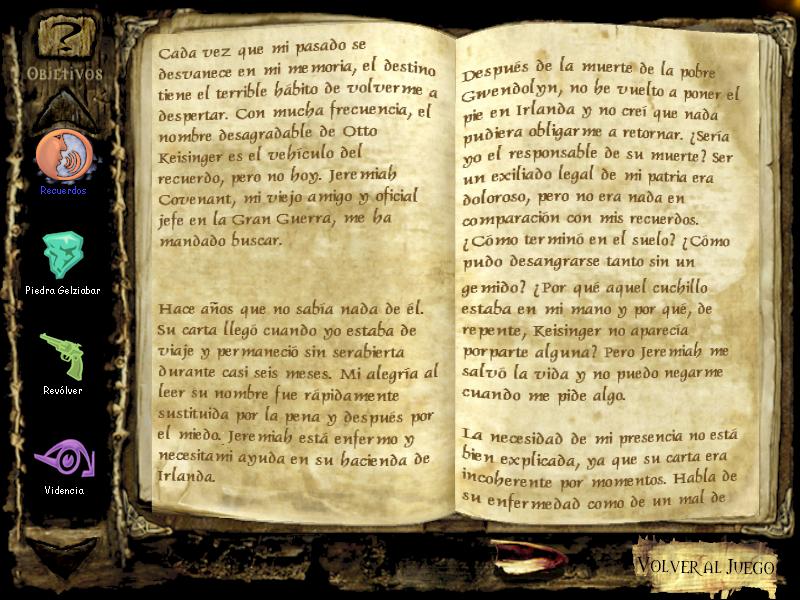 OBJETIVOS
Recuerdos
Piedra Gelziabar
Revólver
Videncia
Cada vez que mi pasado se
desvanece en mi memoria, el destino
tiene el terrible hábito de volverme a
despertar. Con mucha frecuencia, el
nombre desagradable de Otto
Keisinger es el vehículo del
recuerdo, pero no hoy. Jeremiah
Covenant, mi viejo amigo y oficial
jefe en la Gran Guerra, me ha
mandado buscar.
Hace años que no sabía nada de él.
Su carta llegó cuando yo estaba de
viaje y permaneció sin serabierta
durante casi seis meses. Mi alegría al
leer su nombre fue rápidamente
sustituida por la pena y después por
el miedo. Jeremiah está enfermo y
necesitami ayuda en su hacienda de
Irlanda.
Después de la muerte de la pobre
Gwendolyn, no he vuelto a poner el
pie en Irlanda y no creí que nada
pudiera obligarme a retornar. ¿Sería
yo el responsable de su muerte? Ser
un exiliado legal de mi patria era
doloroso, pero no era nada en
comparación con mis recuerdos.
¿Cómo terminó en el suelo? ¿Cómo
pudo desangrarse tanto sin un
gemido? ¿Por qué aquel cuchillo
estaba en mi mano y por qué, de
repente, Keisinger no aparecía
porparte alguna? Pero Jeremiah me
salvó la vida y no puedo negarme
cuando me pide algo.
La necesidad de mi presencia no está
bien explicada, ya que su carta era
incoherente por momentos. Habla de
su enfermedad como de un mal de
VOLVER AL JUEGO